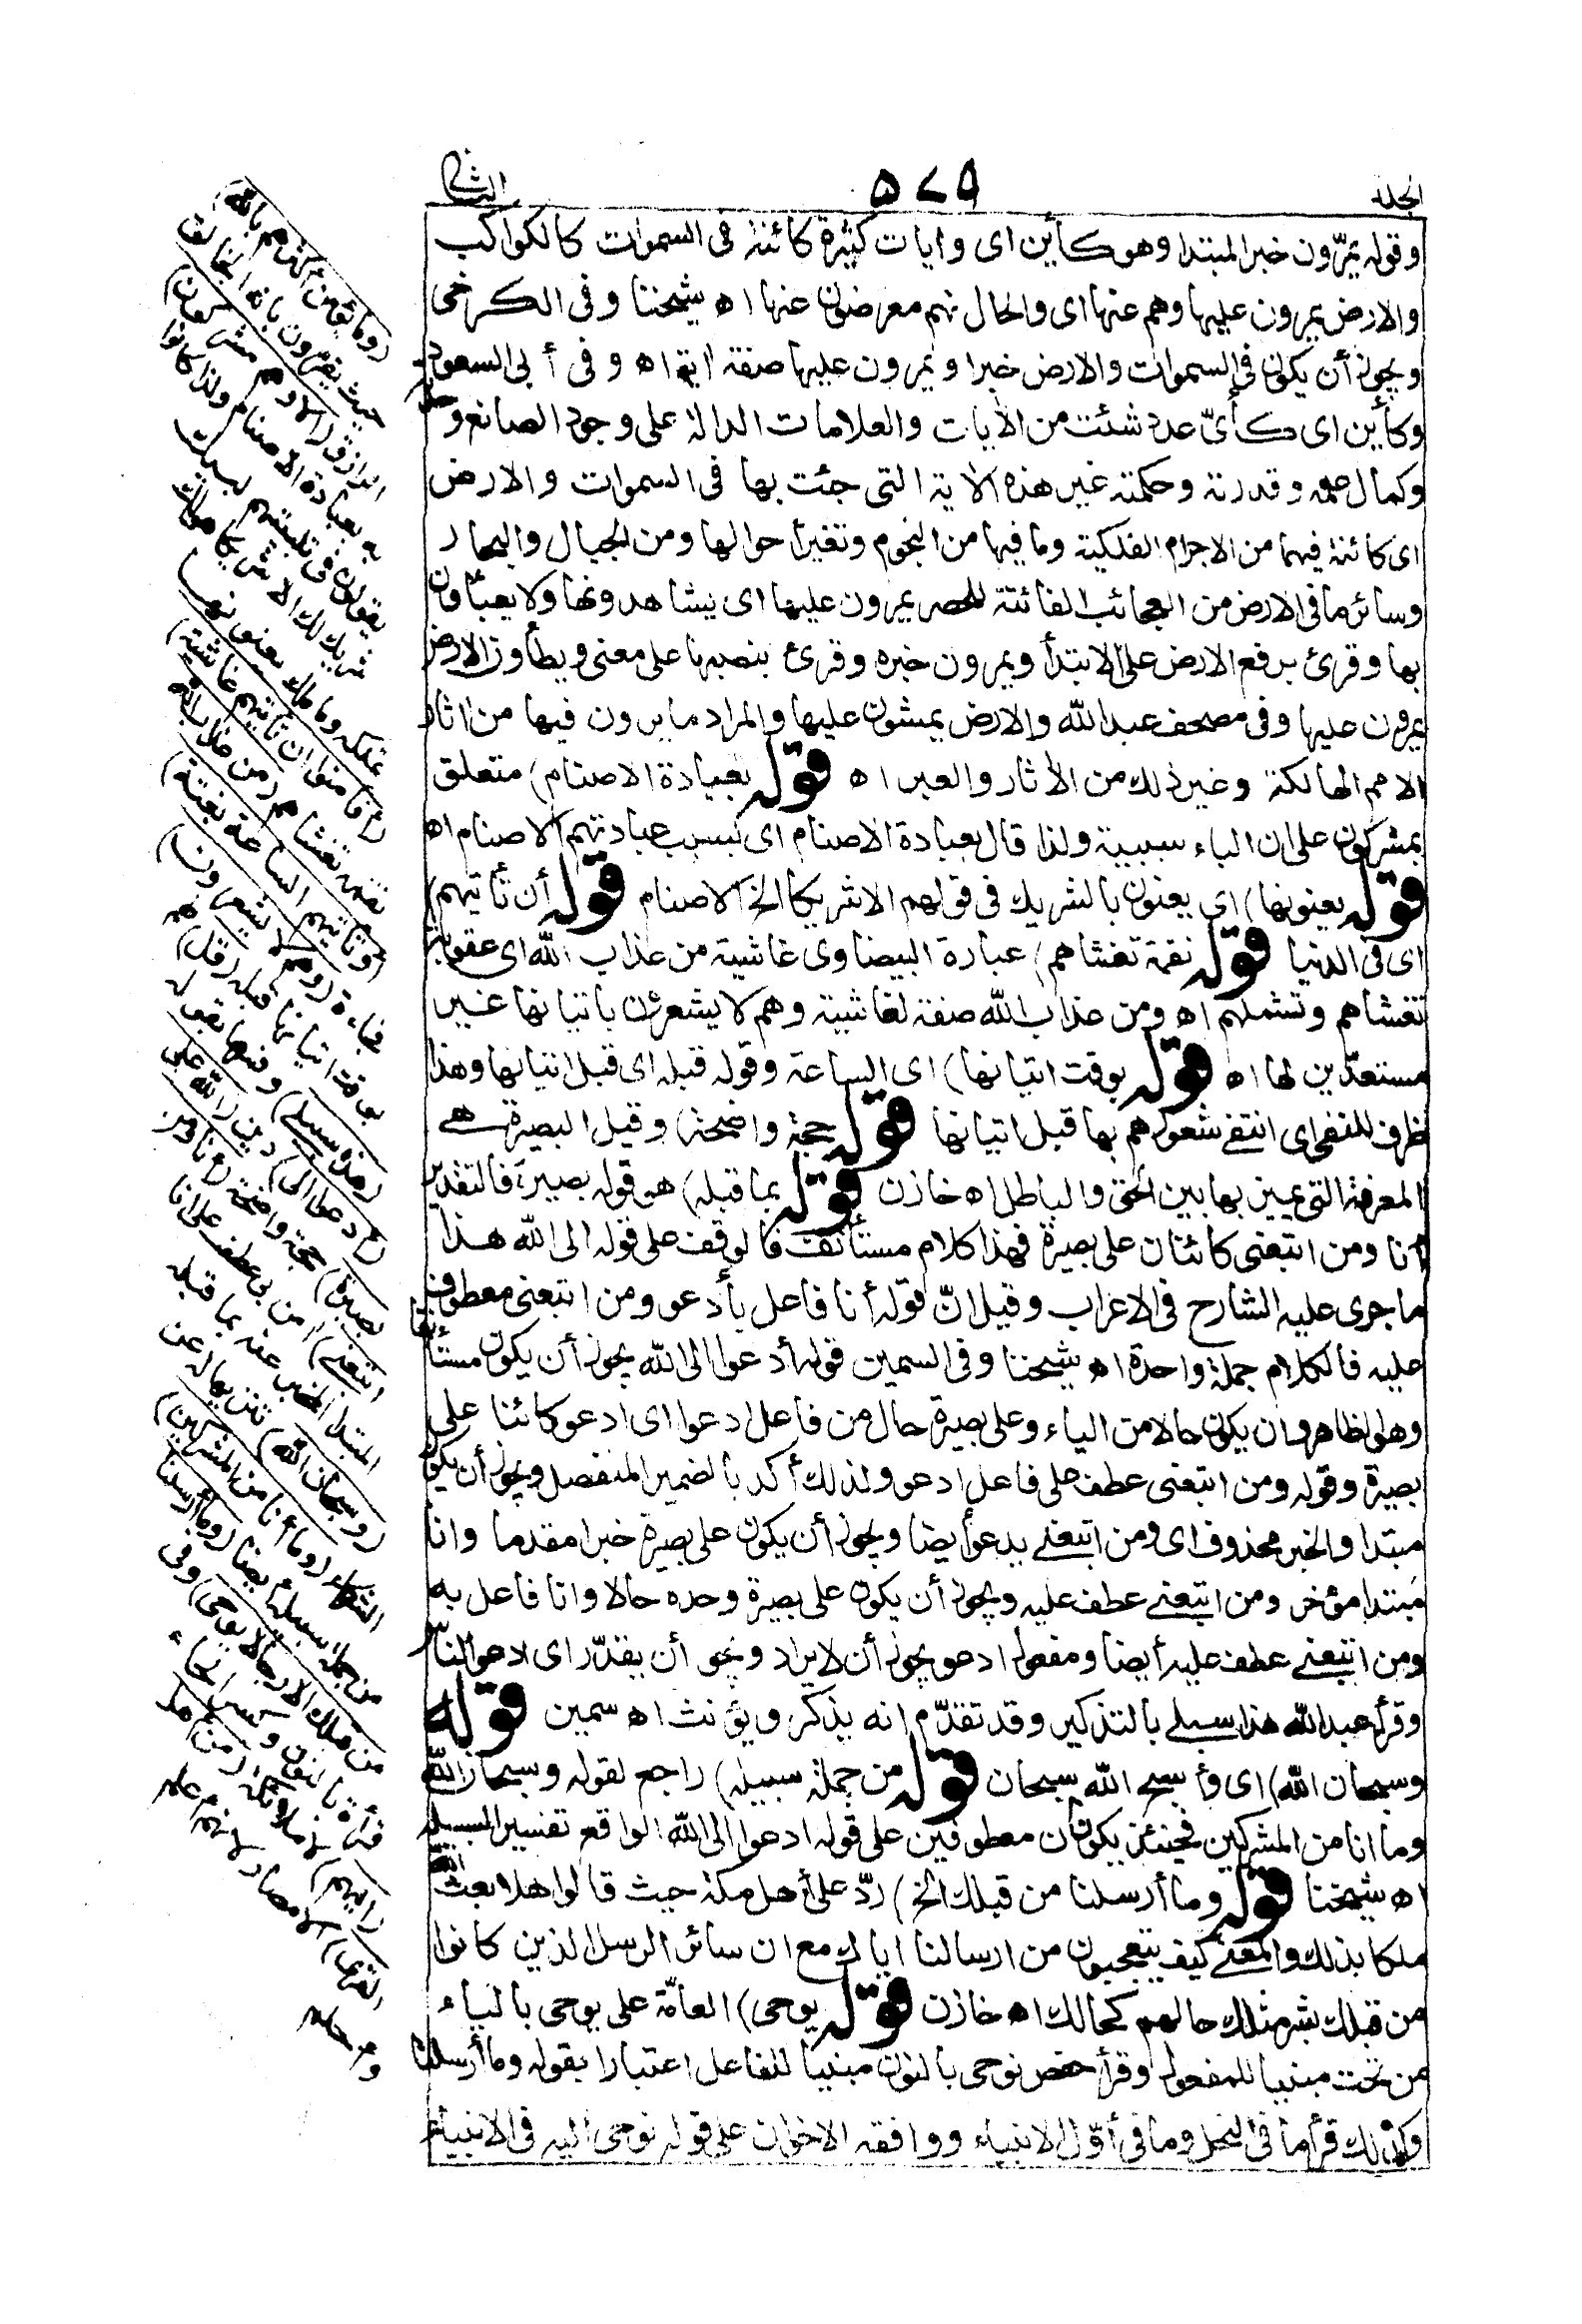 الجلد ٥٧٩ الثانى
وقوله يمرّون خبر المبتدا وهو كأين اى وايات كثيرة كائنة فى السموات كالكواكب
والارض يمرون عليها وهم عنها اى والحال نهم معرضون عنها اه شيخنا وفى الكرخى
ويجوز أن يكون فى السموات والارض خبرا ويمرون عليها صفة اية اه وفى أبى السعود
وكأين اى كأىّ عدد شئت من الأيات والعلامات الدالة على وجود الصانع و
وكمال علمه وقدرته وحكمته غير هذه الأية التى جئت بها فى السموات والارض
اى كائنة فيهما من الاجرام الفلكية وما فيها من النجوم وتغير أحوالها ومن الجبال والبحار
وسائر ما فى الارض من العجائب الفائتة للحصر يمرون عليها اى يشاهدونها ولا يعبأون
بها وقرئ برفع الارض على الابتدأ ويمرون خبره وقرئ بنصبها على معنى ويطأون الارض
يمرون عليها وفى مصحف عبد الله والارض يمشون عليها والمراد ما يرون فيها من اثار
الامم الهالكة وغير ذلك من الأثار والعبر اه قوله بعبادة الاصنام) متعلق
بمشركون على ان الباء سببية ولذا قال بعبادة الاصنام اى بسبب عبادتهم الاصنام اه
قوله يعنونها) اى يعنون بالشريك فى قولهم الاشريكا الخ الاصنام قوله أن تأتيهم)
اى فى الدنيا قوله نقمة تغشاهم) عبارة البيضاوى غاشية من عذاب الله اى عقوبة
تغشاهم وتشملهم اه ومن عذاب الله صفة لغاشية وهم لا يشعرون باتيانها غير
مستعدّين لها اه قوله بوقت اتيانها) اى الساعة وقوله قبله اى قبل اتيانها وهذا
ظرف للنفى اى انتفى شعورهم بها قبل اتيانها قوله حجة واضحة) وقيل البصيرة هى
المعرفة التى يميز بها بين الحق والباطل اه خازن قوله بما قبله) هو قوله بصيرة فالتقدير
أنا ومن اتبعنى كائنان على بصيرة فهذا كلام مستأنف فالوقف على قوله الى الله هذا
ما جرى عليه الشارح فى الاعراب وقيل انّ قوله أنا فاعل بأدعو ومن اتبعنى معطوف
عليه فالكلام جملة واحدة اه شيخنا وفى السمين قوله أدعوا الى الله يجوز أن يكون مستأنفا
وهو الظاهر وان يكون حالا من الياء وعلى بصيرة حال من فاعل ادعوا اى ادعو كائنا على
بصيرة وقوله ومن اتبعنى عطف على فاعل ادعو ولذلك أكد بالضمير المنفصل ويجوز أن يكون
مبتدا والخبر محذوف اى ومن اتبعنى يدعو أيضا ويجوز أن يكون على بصيرة خبرا مقدما وانا
مبتدا مؤخر ومن اتبعنى عطف عليه ويجوز أن يكون على بصيرة وحده حالا وانا فاعل به
ومن اتبعنى عطف عليه أيضا ومفعول ادعو يجوز أن لا يراد ويجوز أن يقدّر اى ادعو الناس
وقرأ عبد الله هذا سبيلى بالتذكير وقد تقدّم انه يذكر ويؤنث اه سمين قوله
وسبحان الله) اى وأسبح الله سبحان قوله من جملة سبيله) راجع لقوله وسبحان الله
وما انا من المشركين فحينئذ يكونان معطوفين على قوله ادعوا الى الله الواقع تفسيرا لسبيله
اه شيخنا قوله وما أرسلنا من قبلك الخ) ردّ على أهل مكة حيث قالوا هلا بعث الله
ملكا بذلك والمعنى كيف يتعجبون من ارسالنا اياك مع ان سائر الرسل الذين كانوا
من قبلك بشر مثلك حالهم كحالك اه خازن قوله يوحى) العامّة على يوحى بالياء
من تحت مبنيا للمفعول وقرأ حفص نوحى بالنون مبنيا للفاعل اعتبارا بقوله وما أرسلنا
وكذلك قرأ ما فى النحل وما فى أوّل الانبياء ووافقه الاخوان على قوله نوحى اليه فى الانبياء
(وما يؤمن أكثرهم بالله)
حيث يقرون بانه الخالق
الرازق (الا وهم مشركون)
به بعبادة الاصنام ولذا كانوا
يقولون فى تلبيتهم لبيك لا
شريك لك الا شريكا هو لك
تملكه وما ملك يعنونها
(أفأمنوا ان تأتيهم غاشية)
نقمة تغشاهم (من عذاب الله
أو تأتيهم الساعة بغتة)
فجاءة (وهم لا يشعرون)
بوقت اتيانها قبله (قل) لهم
(هذه سبيلى) وفسرها بقوله
(أدعوا الى) دين (الله على
بصيرة) حجة واضحة (أنا ومن
اتبعنى) امن بى عطف على انا
المبتدا المخبر عنه بما قبله
(وسبحان الله) تنزيها له عن
الشركاء (وما أنا من المشركين)
من جملة سبيله أيضا (وما أرسلنا
من قبلك الا رجالا يوحى) وفى
قراءة بالنون وكسر الحاء
(اليهم) لا ملائكة (من أهل
القرى) الامصار لانهم اعلم
واحلم